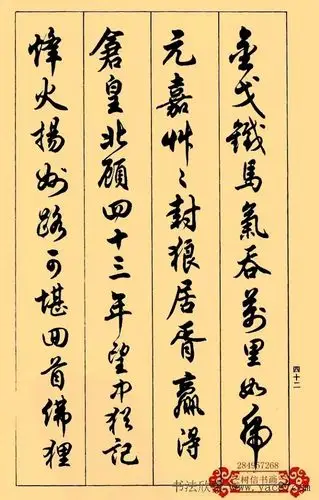 金戈鐵馬氣吞萬里如虎
元嘉艸々封狼居胥贏得
倉皇北顧四十三年望中猶記
烽火揚州路可堪回首佛狸
四十二
284957268
树信书画
书法欣